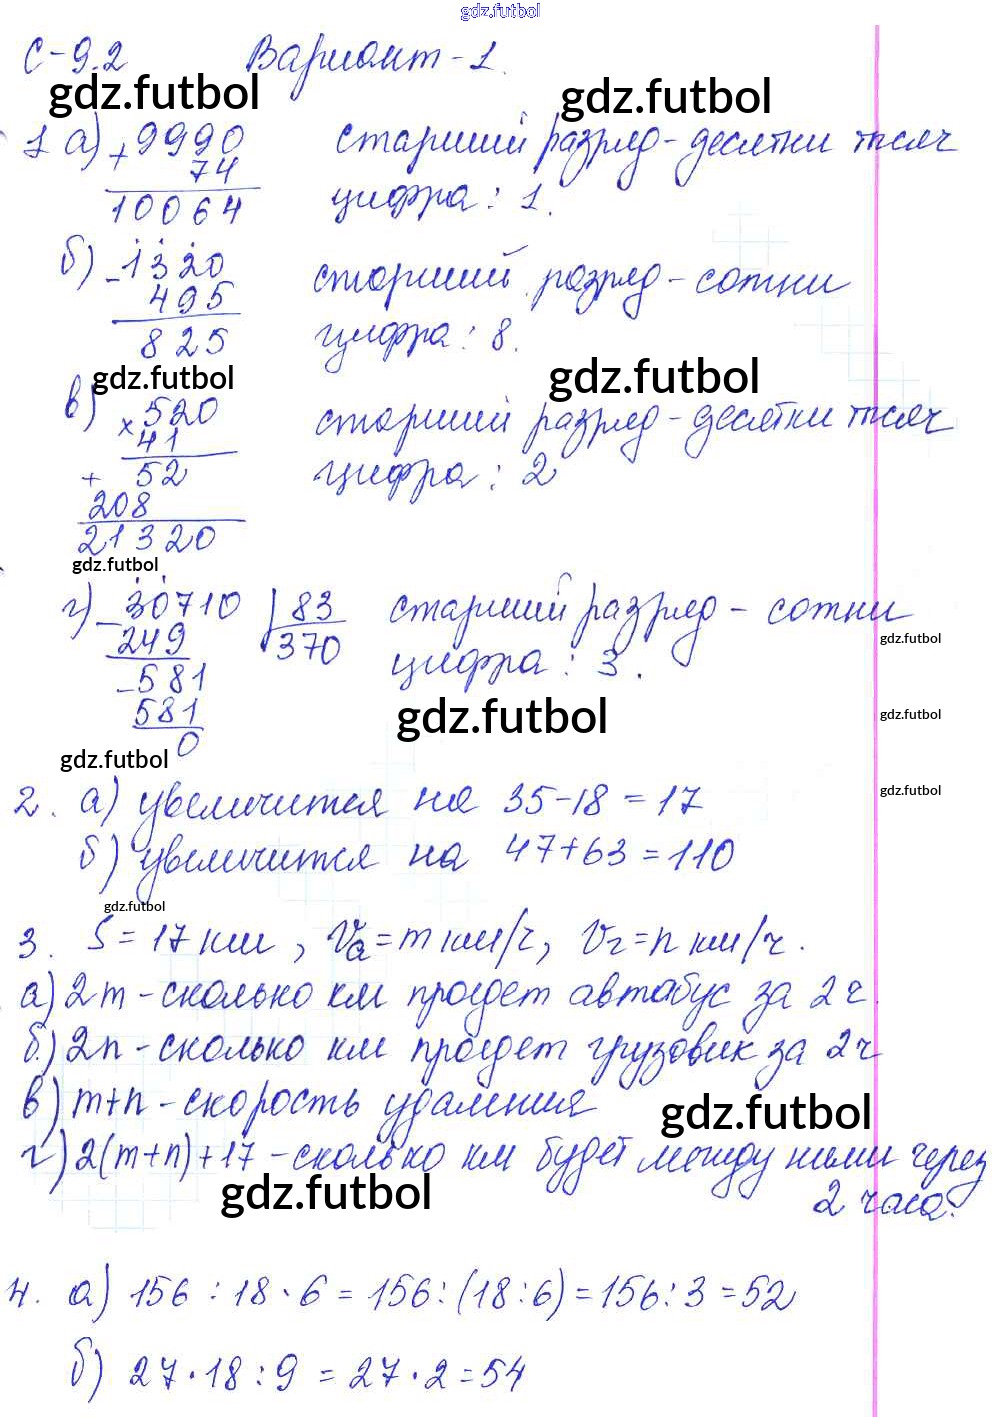 gdz.futbol
С-9.2 Вариант-1.
gdz.futbol gdz.futbol
1 а) + 9990 старший разряд - десятки тысяч
74
10064 цифра: 1.
б) - 1320 старший разряд - сотни
495
825 цифра: 8.
gdz.futbol gdz.futbol
в) × 520 старший разряд - десятки тысяч
41
+ 52 цифра: 2
208
21320
gdz.futbol
г) - 30710 | 83 старший разряд - сотни
249 370 gdz.futbol
- 581 цифра: 3.
581 gdz.futbol gdz.futbol
0
gdz.futbol
2. а) увеличится на 35-18=17 gdz.futbol
б) увеличится на 47+63=110
gdz.futbol
3. S=17 км, Vа=m км/ч, Vг=n км/ч.
а) 2m - сколько км проедет автобус за 2 ч.
б.) 2n - сколько км проедет грузовик за 2ч
в) m+n - скорость удаления gdz.futbol
г) 2(m+n)+17 - сколько км будет между ними через
gdz.futbol 2 часа.
4. а) 156:18·6=156:(18:6)=156:3=52
б) 27·18:9=27·2=54